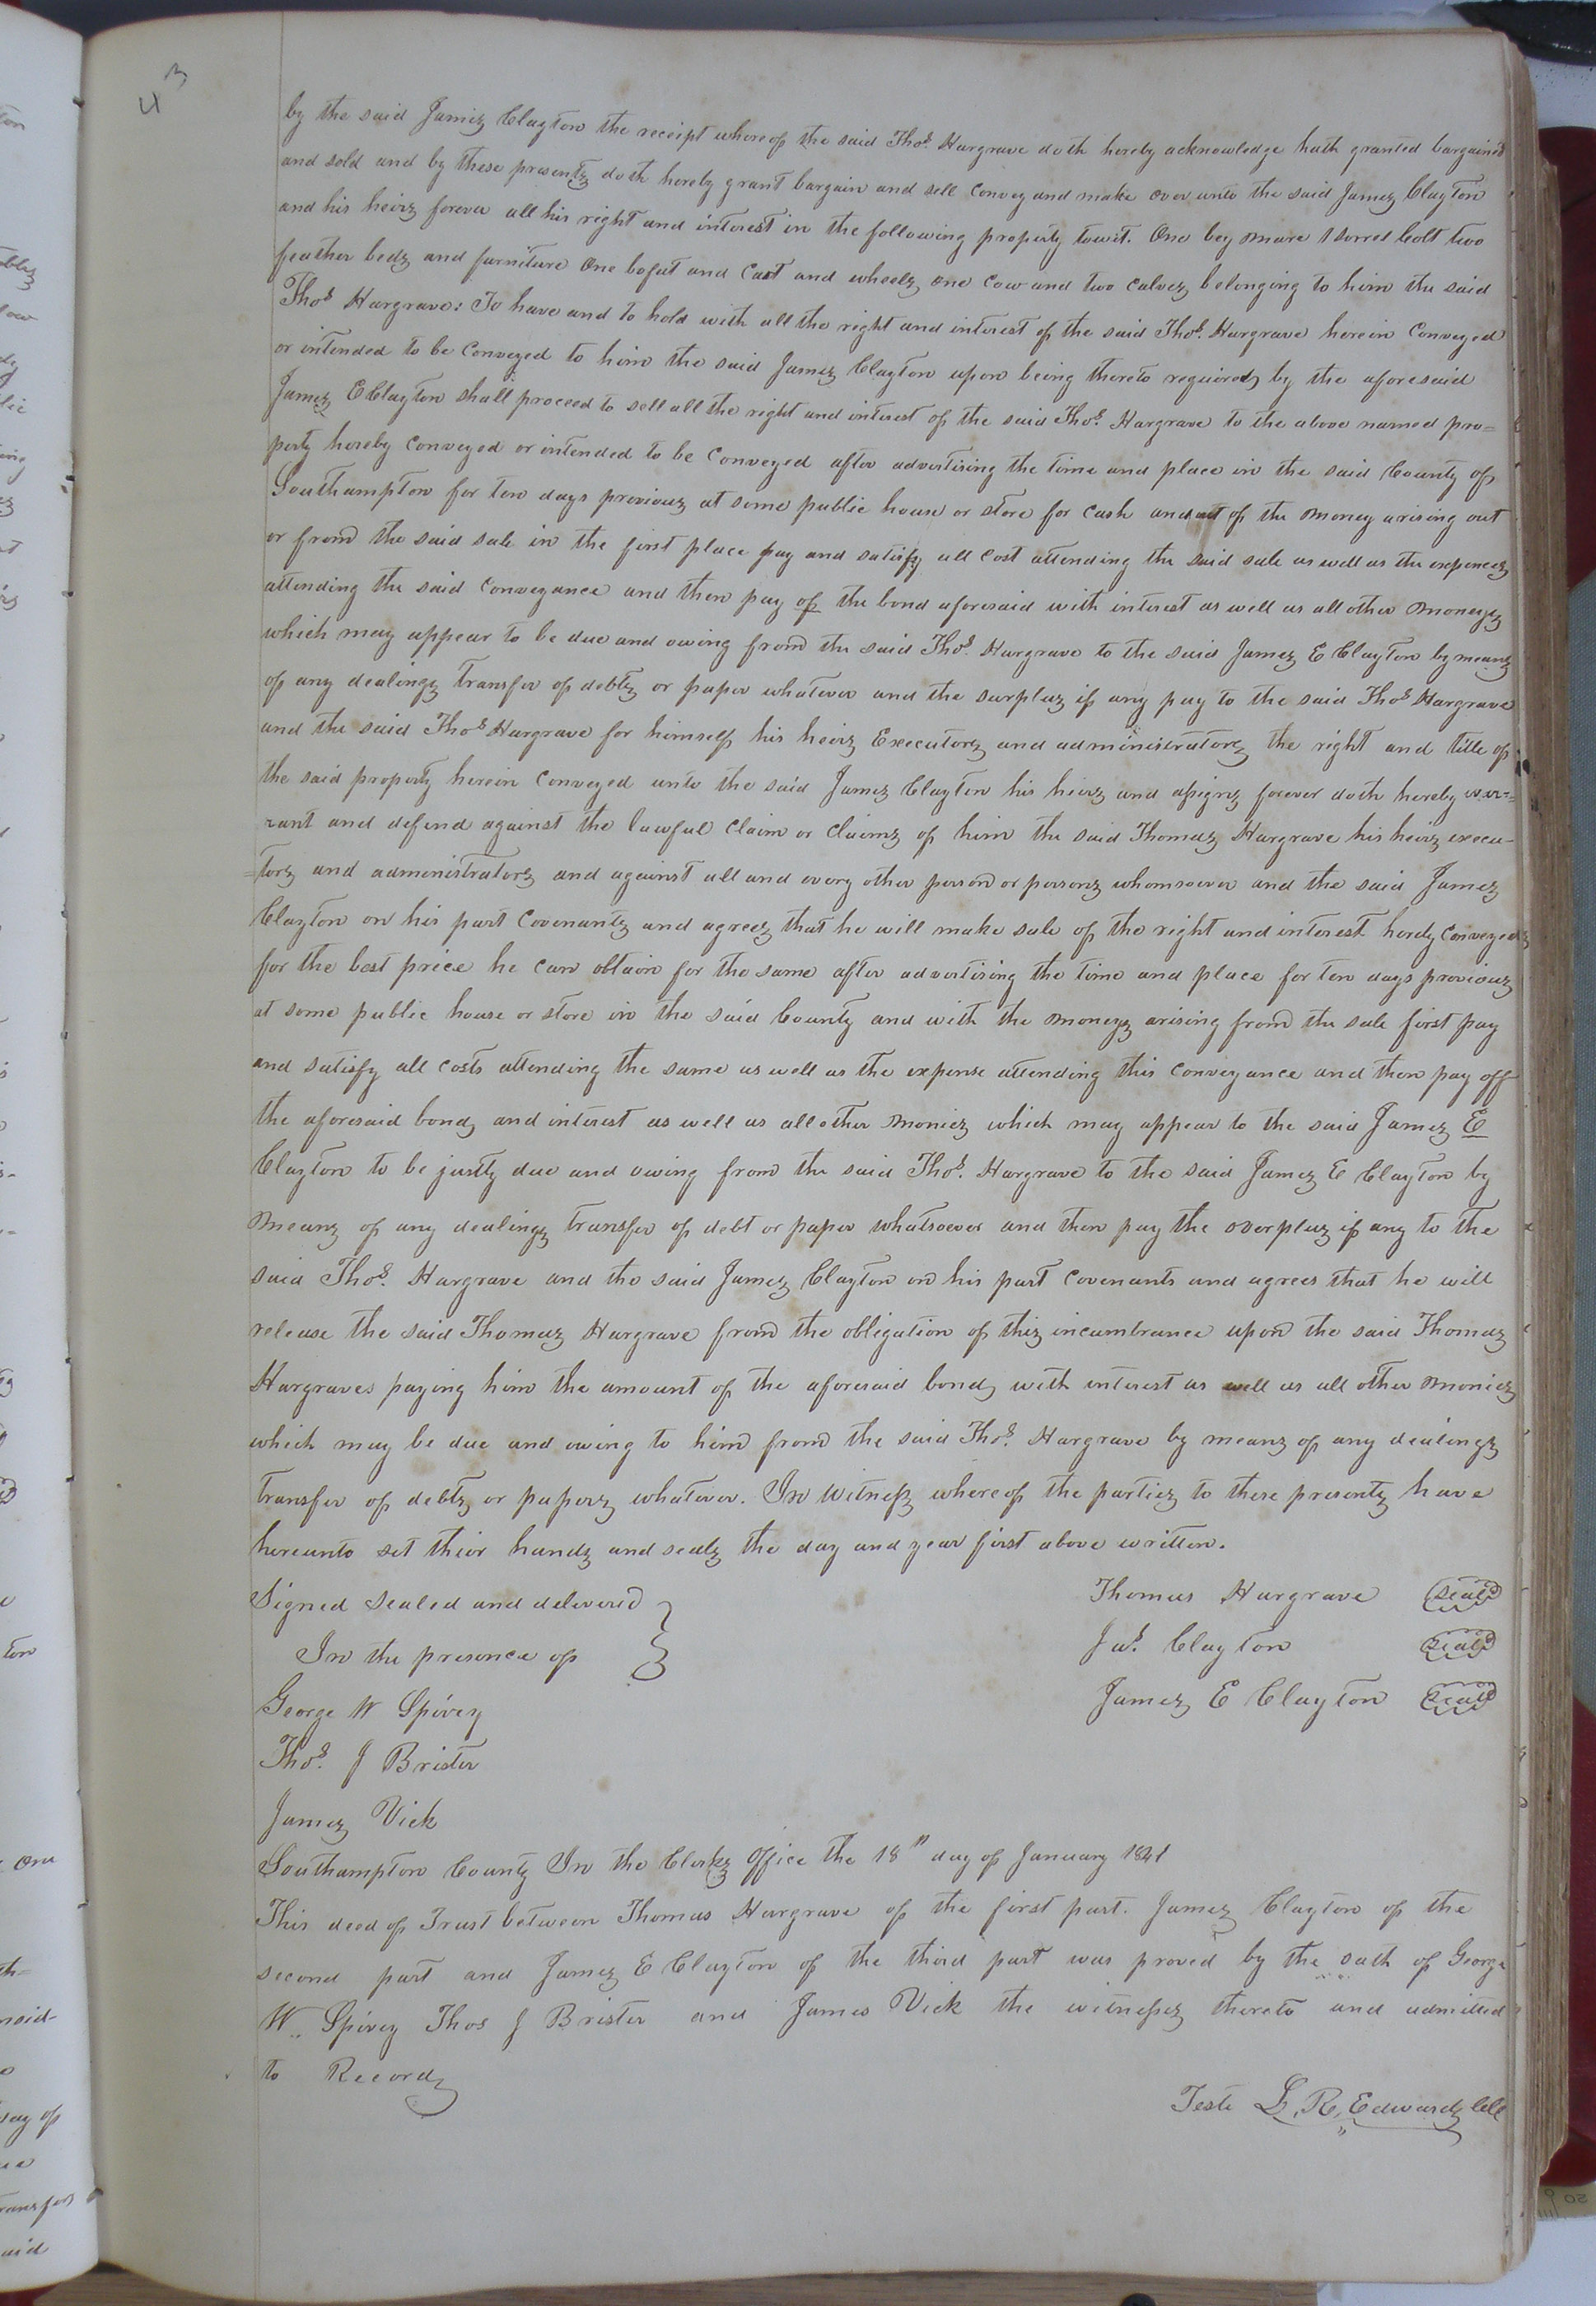 43
by the said James Clayton the receipt whereof the said Thos. Hargrave doth hereby acknowledge hath granted bargained
and sold and by these presents doth hereby grant bargain and sell convey and make over unto the said James Clayton
and his heirs forever all his right and interest in the following property towit. One bey mare 1 sorrel Colt two
feather beds and furniture One bofat and Cart and wheels one Cow and two calves belonging to him the said
Thos Hargrave: To have and to hold with all the right and interest of the said Thos. Hargrave herein Conveyed
or intended to be Conveyed to him the said James Clayton upon being thereto required by the aforesaid
James E Clayton shall proceed to sell all the right and interest of the said Thos. Hargrave to the above named pro=
perty hereby Conveyed or intended to be Conveyed after advertising the time and place in the said County of
Southampton for ten days previous at some public house or store for cash and out of the money arising out
or from the said sale in the first place pay and satisfy all Cost attending the said sale as well as the expences
attending the said Conveyance and then pay of the bond aforesaid with interest as well as all other moneys
which may appear to be due and owing from the said Thos. Hargrave to the said James E Clayton by means
of any dealings transfer of debts or paper whatever and the surplus if any pay to the said Thos Hargrave
and the said Thos Hargrave for himself his heirs Executors and administrators the right and title of
the said property herein Conveyed unto the said James Clayton his heirs and assigns forever doth hereby war=
rant and defend against the lawful Claim or Claims of him the said Thomas Hargrave his heirs execu-
=tors and administrators and against all and every other person or persons whomsoever and the said James
Clayton on his part Covenants and agrees that he will make sale of the right and interest herby Conveyed
for the best price he can obtain for the same after advertising the time and place for ten days previous
at some public house or store in the said County and with the moneys arising from the sale first pay
and satisfy all Costs attending the same as well as the expense attending this Conveyance and then pay off
the aforesaid bond and interest as well as all other monies which may appear to the said James E
Clayton to be justly due and owing from the said Thos. Hargrave to the said James E Clayton by
means of any dealings transfer of debt or paper whatsoever and then pay the overplus if any to the
said Thos. Hargrave and the said James Clayton on his part Covenants and agrees that he will
release the said Thomas Hargrave from the obligation of this incumbrance upon the said Thomas
Hargraves paying him the amount of the aforesaid bond with interest as well as all other monies
which may be due and owing to him from the said Thos. Hargrave by means of any dealings
transfer of debts or papers whatever. In Witness whereof the parties to these presents have
hereunto set thier hands and seals the day and year first above written.
Signed Sealed and delivered } Thomas Hargrave (Seal)
In the presence of } Jas. Clayton (Seal)
George W Spivey James E Clayton (Seal)
Thos. J Brister
James Vick
Southampton County In the Clerks Office the 18" day of January 1841
This deed of Trust between Thomas Hargrave of the first part. James Clayton of the
second part and James E Clayton of the third part was proved by the oath of George
W. Spivey Thos J Brister and James Vick the witnesses thereto and admitted
to Record
Teste L. R. Edwards Clk